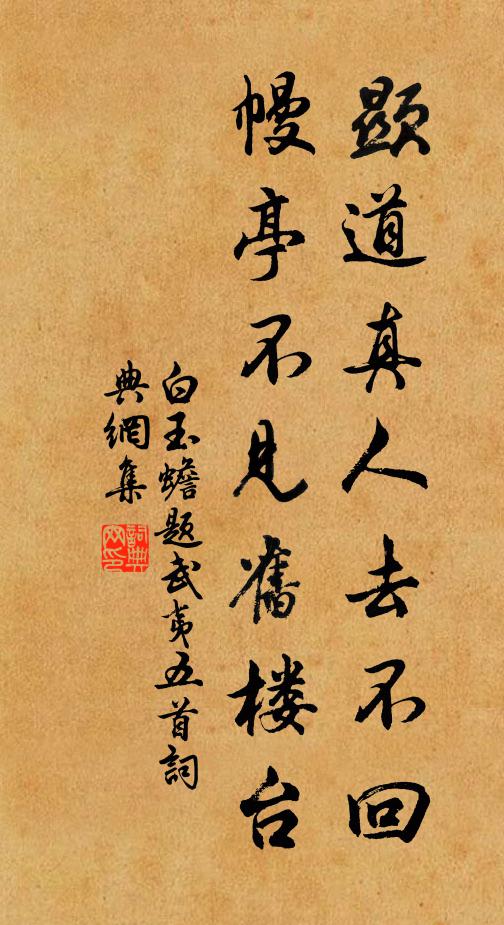 顕道真人去不回
幔亭不見舊楼台
白玉蟾题武夷五首詞
典網集
詞典网印